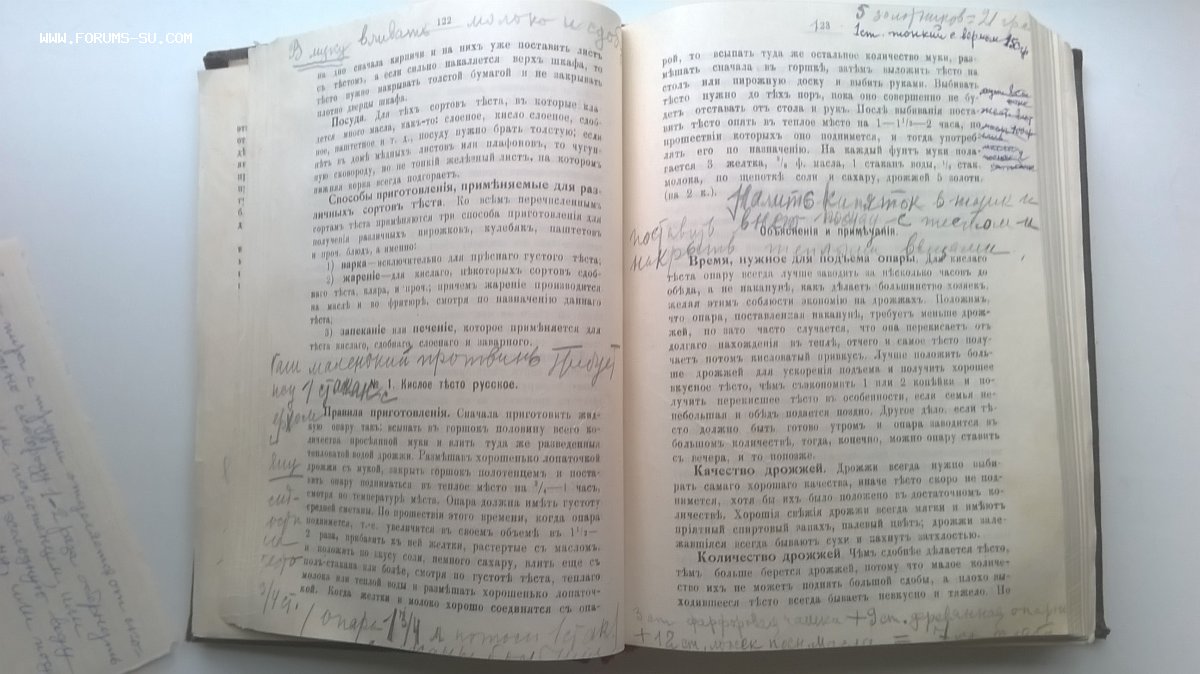 WWW.FORUMS-SU.COM
122
В муку вливать молоко и сдоб
на дно сначала кирпичи и на нихъ уже поставить листъ
съ тѣстомъ; а если сильно накаляется верхъ шкафа, то
тѣсто нужно накрывать толстой бумагой и не закрывать
плотно дверцы шкафа.
Посуда. Для тѣхъ сортовъ тѣста, въ которые кла-
дется много масла, какъ-то: слоеное, кисло слоеное, сдоб-
ное, паштетное и т. д., посуду нужно брать толстую; если
нѣтъ въ домѣ мѣдныхъ листовъ или плафоновъ, то чугун-
ную сковороду, но не тонкій желѣзный листъ, на которомъ
нижняя корка всегда подгораетъ.
Способы приготовленія, примѣняемые для раз-
личныхъ сортовъ тѣста. Ко всѣмъ перечисленнымъ
сортамъ тѣста примѣняются три способа приготовленія для
полученія различныхъ пирожковъ, кулебякъ, паштетовъ
и проч. блюдъ, а именно:
1) варка—исключительно для прѣснаго густого тѣста;
2) жареніе—для кислаго, нѣкоторыхъ сортовъ сдоб-
наго тѣста, кляра, и проч.; причемъ жареніе производится
на маслѣ и во фритюрѣ, смотря по назначенію даннаго
тѣста;
3) запеканіе или печеніе, которое примѣняется для
тѣста кислаго, сдобнаго слоенаго и заварного.
маленький противень требует
1 стакан с
№ 1. Кислое тѣсто русское.
Правила приготовленія. Сначала приготовить жид-
кую опару такъ: всыпать въ горшокъ половину всего ко-
личества просѣянной муки и влить туда же разведенныя
тепловатой водой дрожжи. Размѣшавъ хорошенько лопаточкой
дрожжи съ мукой, закрыть горшокъ полотенцемъ и поста-
вить опару подниматься въ теплое мѣсто на ³/₄—1 часъ,
смотря по температурѣ мѣста. Опара должна имѣть густоту
средней сметаны. По прошествіи этого времени, когда опара
поднимется, т.-е. увеличится въ своемъ объемѣ въ 1¹/₂—
2 раза, прибавить къ ней желтки, растертые съ масломъ,
и положить по вкусу соли, немного сахару, влить еще съ
полъ-стакана или болѣе, смотря по густотѣ тѣста, теплаго
молока или теплой воды и размѣшать хорошенько лопаточ-
кой. Когда желтки и молоко хорошо соединятся съ опа-
3/4 ст.
опара 1 3/4
123
5 золотников = 21 гр
1 ст. тонкий с верхом 150 гр
рой, то всыпать туда же остальное количество муки, раз-
мѣшать сначала въ горшкѣ, затѣмъ выложить тѣсто на
столъ или пирожную доску и выбить руками. Выбивать
тѣсто нужно до тѣхъ поръ, пока оно совершенно не бу-
детъ отставать отъ стола и рукъ. Послѣ выбиванія поста-
вить тѣсто опять въ теплое мѣсто на 1—1¹/₂—2 часа, по
прошествіи которыхъ оно поднимется, и тогда употреб-
лять его по назначенію. На каждый фунтъ муки пола-
гается 3 желтка, ф. масла, 1 стаканъ воды, стак.
молока, по щепоткѣ соли и сахару, дрожжей 5 золотн.
(на 2 к.).
Налить кипяток в ящик и
поставить в него посуду с тестом и
накрыть теплыми вещами
Объясненія и примѣчанія.
Время, нужное для подъема опары. Для кислаго
тѣста опару всегда лучше заводить за нѣсколько часовъ до
обѣда, а не наканунѣ, какъ дѣлаетъ большинство хозяекъ,
желая этимъ соблюсти экономію на дрожжахъ. Положимъ,
что опара, поставленная наканунѣ, требуетъ меньше дрож-
жей, но зато часто случается, что она перекисаетъ отъ
долгаго нахожденія въ теплѣ, отчего и самое тѣсто полу-
чаетъ потомъ кисловатый привкусъ. Лучше положить боль-
ше дрожжей для ускоренія подъема и получить хорошее
вкусное тѣсто, чѣмъ съэкономить 1 или 2 копѣйки и по-
лучить перекисшее тѣсто въ особенности, если семья не-
небольшая и обѣдъ подается поздно. Другое дѣло, если тѣ-
сто должно быть готово утромъ и опара заводится въ
большомъ количествѣ, тогда, конечно, можно опару ставить
съ вечера, и то попозже.
Качество дрожжей. Дрожжи всегда нужно выби-
рать самаго хорошаго качества, иначе тѣсто скоро не под-
нимется, хотя бы ихъ было положено въ достаточномъ ко-
личествѣ. Хорошія свѣжія дрожжи всегда мягки и имѣютъ
пріятный спиртовый запахъ, палевый цвѣтъ; дрожжи зале-
жавшіяся всегда бываютъ сухи и пахнутъ затхлостью.
Количество дрожжей. Чѣмъ сдобнѣе дѣлается тѣсто,
тѣмъ больше берется дрожжей, потому что малое количе-
ство ихъ не можетъ поднять большой сдобы, а плохо вы-
ходившееся тѣсто всегда бываетъ невкусно и тяжело. Но
3 ст. фарфоровая чашка + 9 ст. деревянная опары
+ 12 ст. ложек